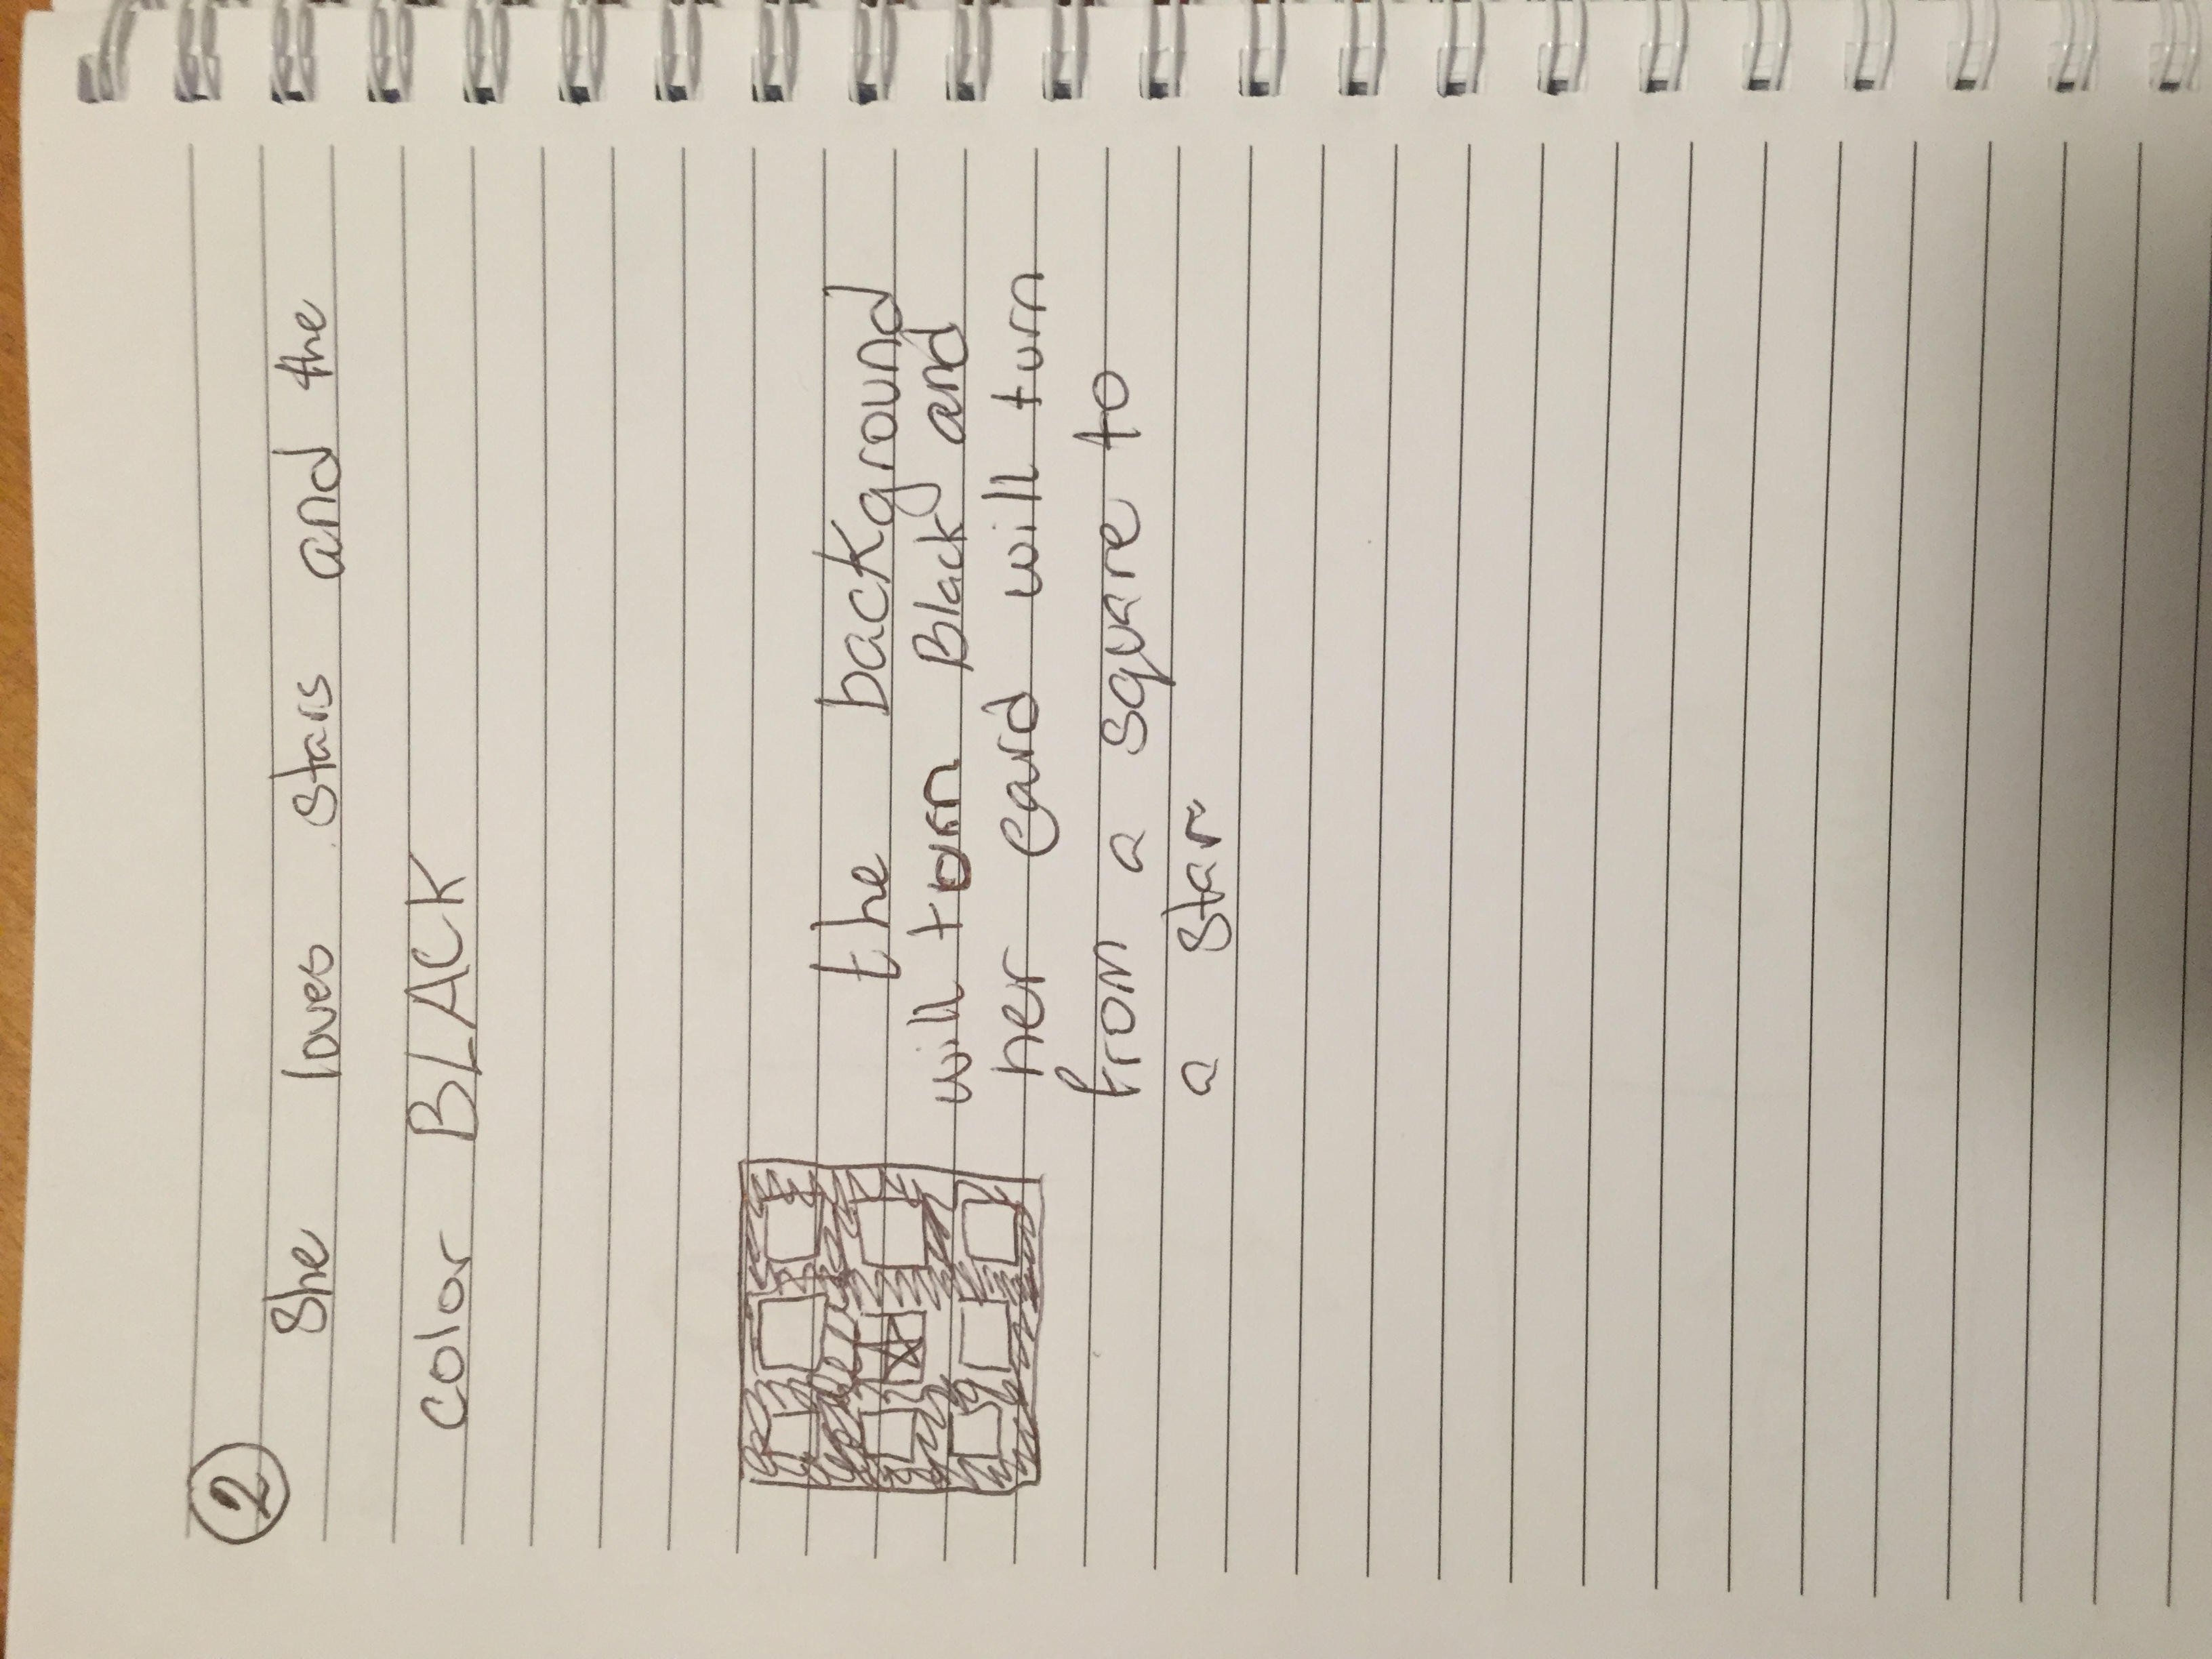 2
She loves stars and the
color BLACK
the background
will turn Black and
her card will turn
from a square to
a star